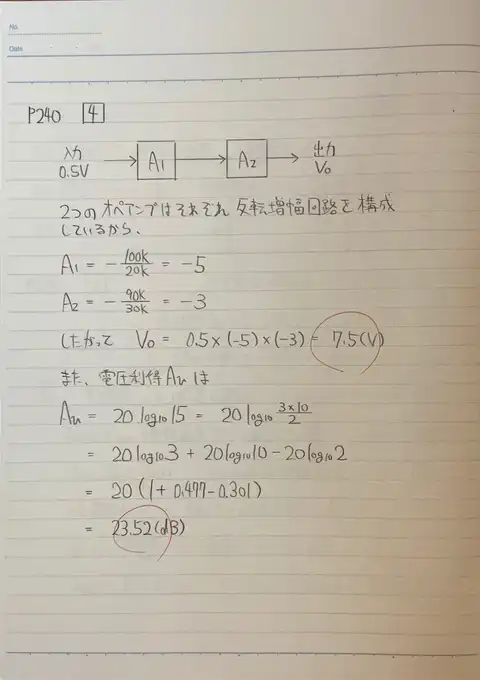 No.
Date
P240 4
入力 0.5V → A₁ → A₂ → 出力 V₀
2つのオペアンプはそれぞれ反転増幅回路を構成
しているから、
A₁ = -100k/20k = -5
A₂ = -90k/30k = -3
したがって V₀ = 0.5×(-5)×(-3) = 7.5(V)
また、電圧利得Aᵤは
Aᵤ = 20 log₁₀15 = 20 log₁₀ 3×10/2
= 20log₁₀3 + 20log₁₀10 - 20log₁₀2
= 20(1+0.477-0.301)
= 23.52(dB)